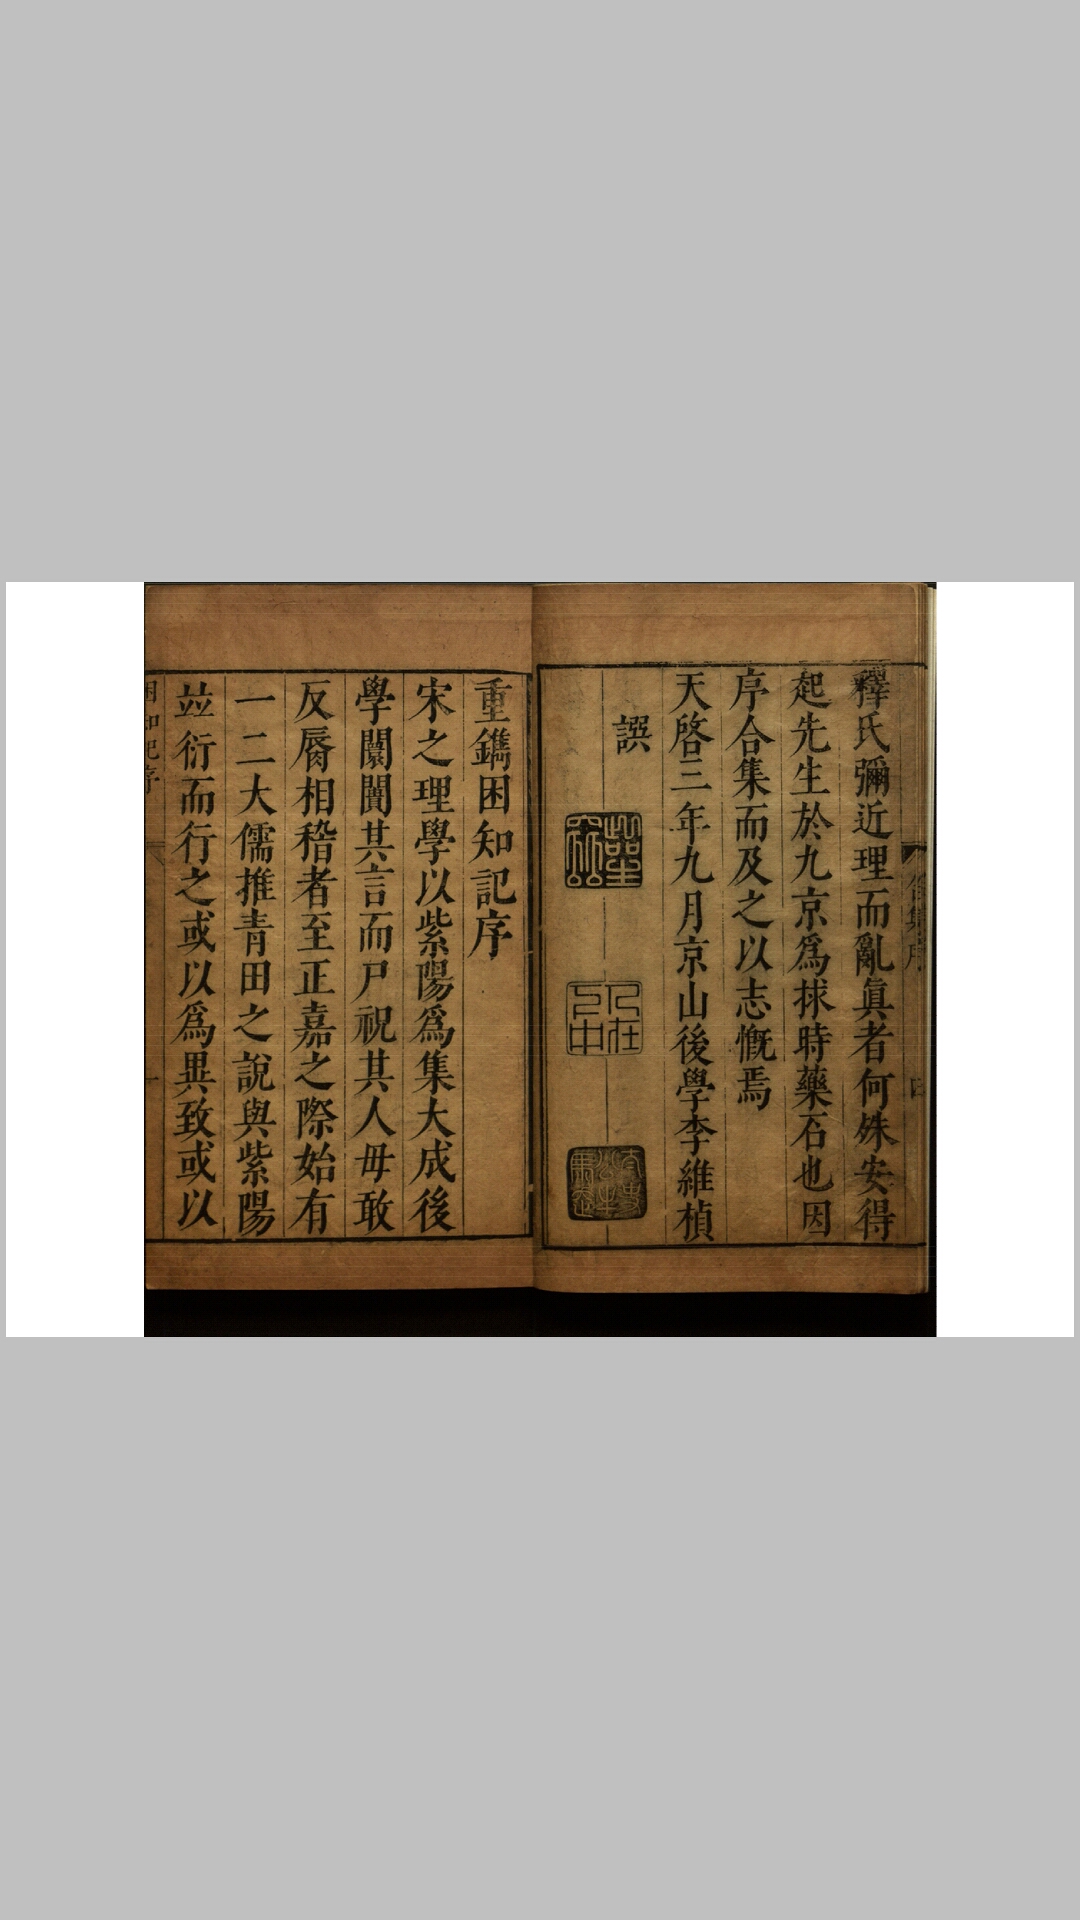 釋氏彌近理而亂眞者何殊安得
起先生於九京爲捄時藥石也因
序合集而及之以志慨焉
天啓三年九月京山後學李維楨
譔
重鐫困知記序
宋之理學以紫陽爲集大成後
學闤闠其言而尸祝其人毋敢
反脣相稽者至正嘉之際始有
一二大儒推青田之說與紫陽
竝衍而行之或以爲異致或以
困知記序